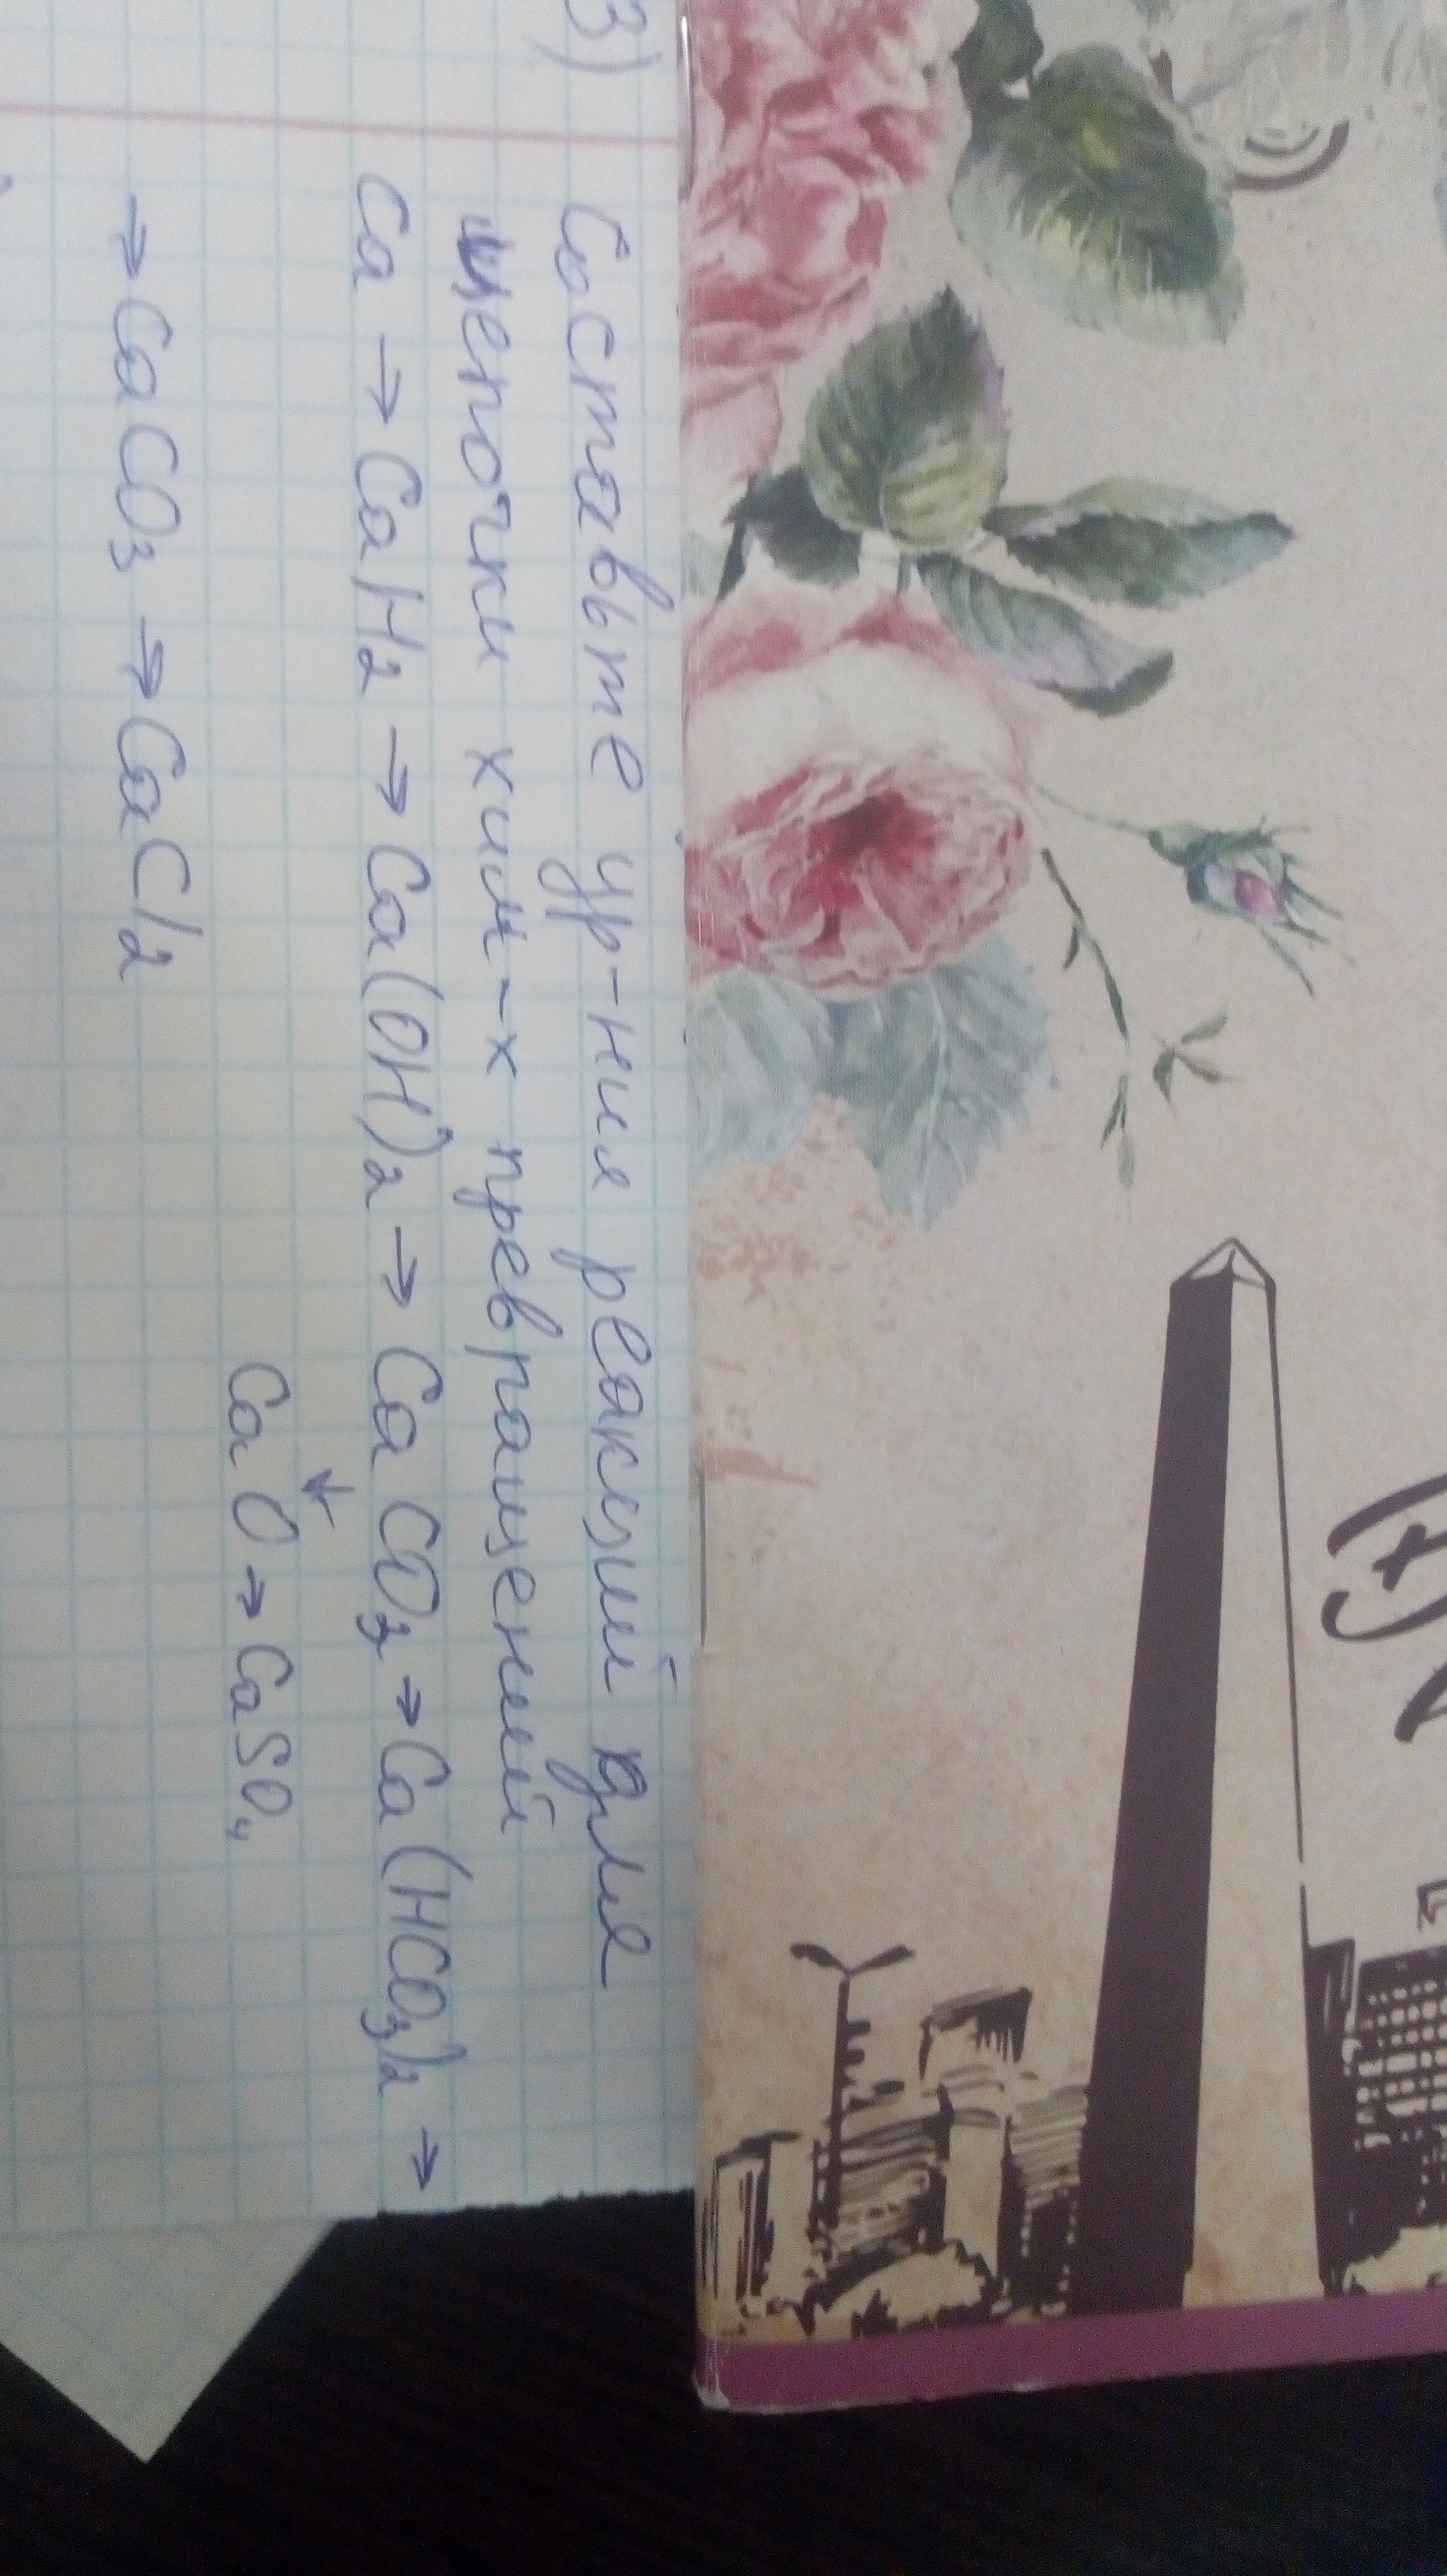 3) Составьте ур-ния реакций для
цепочки хим-х превращений
Ca → CaH2 → Ca(OH)2 → CaCO3 → Ca(HCO3)2 →
↓
CaO → CaSO4
→ CaCO3 → CaCl2